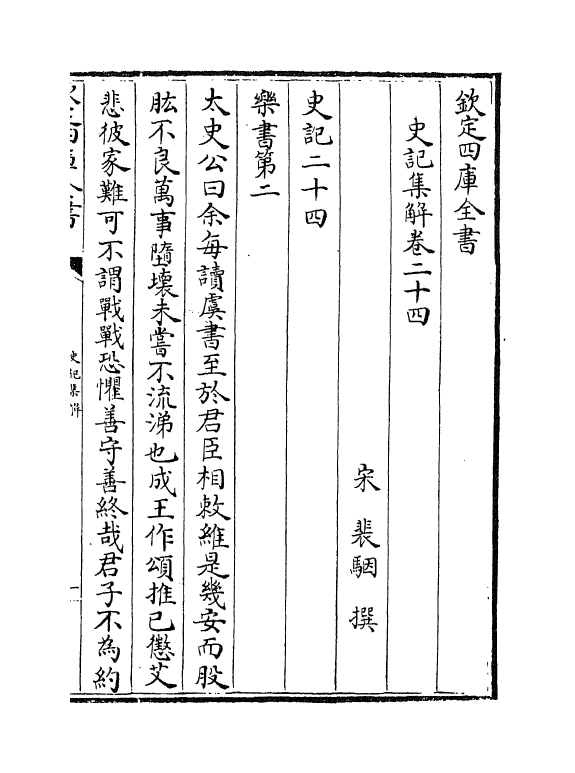 欽定四庫全書
史記集解卷二十四
宋 裴駰 撰
史記二十四
樂書第二
太史公曰余每讀虞書至於君臣相敕維是幾安而股
肱不良萬事墮壞未嘗不流涕也成王作頌推已懲艾
悲彼家難可不謂戰戰恐懼善守善終哉君子不為約
史記集解
一